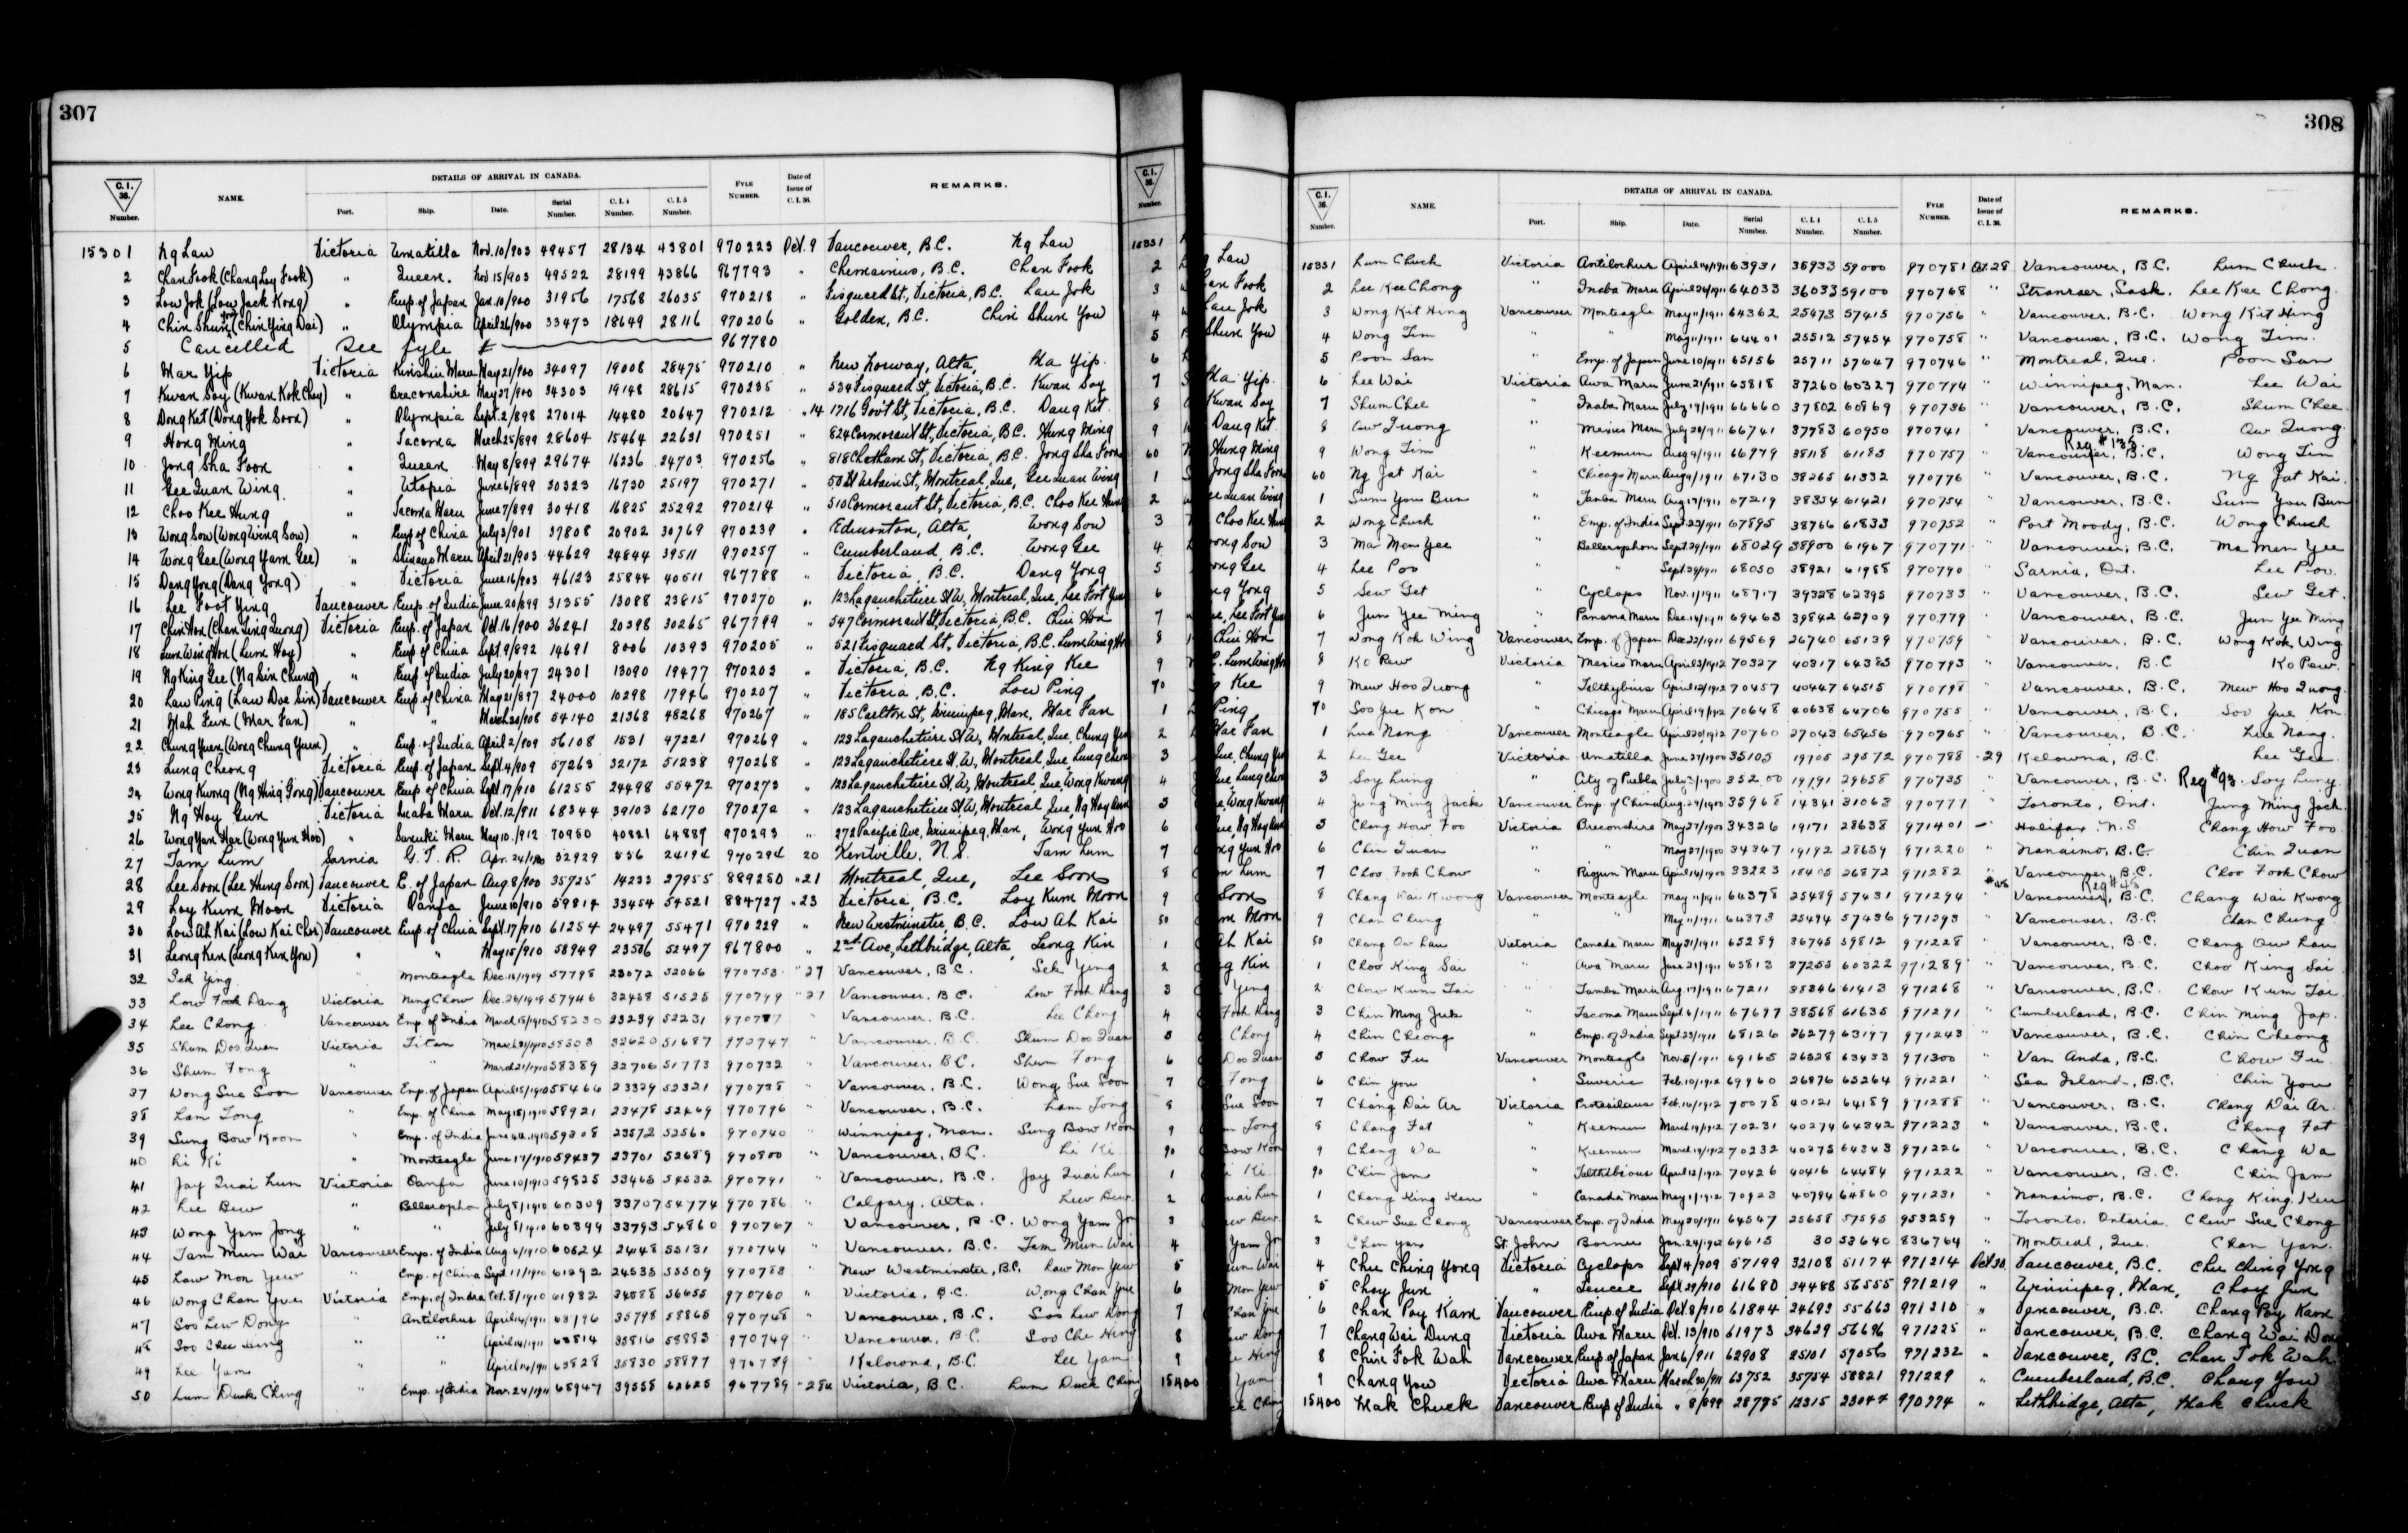 307
C.I. 36. Number. NAME. DETAILS OF ARRIVAL IN CANADA. Port. Ship. Date. Serial Number. C.I.4 Number. C.I.5 Number. FYLE NUMBER. Date of Issue of C.I.36. REMARKS.
15301 Ng Law Victoria Umatilla Nov.10/903 49457 28134 43801 970223 Oct.9 Vancouver, B.C. Ng Law
2 Chan Fook (Chang Loy Fook) " Queen. Nov 15/903 49522 28199 43866 967793 " Chemainus, B.C. Chan Fook
3 Low Jok (Low Jack Kong) " Emp of Japan Jan.10/900 31956 17568 26035 970218 " Fisguard St, Victoria, B.C. Lau Jok
4 Chin Shun You (Chin Ying Dai) " Olympia April 26/900 33473 18649 28116 970206 " Golden, B.C. Chin Shun You
5 Cancelled See fyle 967780
6 Mar Yip Victoria Kinshiu Maru May 21/900 34097 19008 28475 970210 " New Norway, Alta, Ma Yip
7 Kwan Soy (Kwan Kok Choy) " Breconshire May 27/900 34303 19148 28615 970235 " 534 Fisguard St, Victoria, B.C. Kwan Soy
8 Dong Ket (Dong Yok Soon) " Olympia Sept.2/898 27014 14480 20647 970212 " 14 1716 Gov't St, Victoria, B.C. Dang Ket
9 Hong Ming " Tacoma March 25/899 28604 15464 22631 970251 " 824 Cormorant St, Victoria, B.C. Hung Ming
10 Jong Sha Foon " Queen May 8/899 29674 16236 24703 970256 " 818 Chatham St, Victoria, B.C. Jong Sha Foon
11 Gee Quan Wing " Utopia June 6/899 30323 16730 25197 970271 " 50 St Urbain St, Montreal, Que, Gee Quan Wing
12 Choo Kee Hung " Tacoma Maru June 7/899 30418 16825 25292 970214 " 510 Cormorant St, Victoria, B.C. Choo Kee Hung
13 Wong Sow (Wong Wing Sow) " Emp of China July 3/901 37808 20902 30769 970239 " Edmonton, Alta, Wong Sow
14 Wong Gee (Wong Yam Gee) " Shinano Maru April 21/903 44629 24844 39511 970257 " Cumberland, B.C. Wong Gee
15 Dang Yong (Dang Yong) " Victoria June 16/903 46123 25844 40511 967788 " Victoria, B.C. Dang Yong
16 Lee Foot Ying Vancouver Emp. of India June 20/899 31355 13088 23815 970270 " 123 Lagauchetiere St W, Montreal, Que, Lee Foot Yung
17 Chin Hon (Chan Ling Quong) Victoria Emp. of Japan Oct.16/900 36241 20398 30265 967799 " 547 Cormorant St, Victoria, B.C. Chin Hon
18 Lum Wing Hon (Lum Hoy) " Emp of China Sept.9/892 14691 8006 10393 970205 " 521 Fisguard St, Victoria, B.C. Lum Wing Hon
19 Ng King Gee (Ng Sin Chung) " Emp of India July 20/897 24301 13090 19477 970203 " Victoria, B.C. Ng King Kee
20 Law Ping (Law Doe Lin) Vancouver Emp of China May 21/897 24000 10298 17946 970207 " Victoria, B.C. Low Ping
21 Mah Fun (Mar Fan) " " March 20/908 54140 21368 48268 970267 " 185 Carlton St, Winnipeg, Man, Mar Fan
22 Chung Yuen (Wong Chung Yuen) " Emp. of India April 2/909 56108 1531 47221 970269 " 123 Lagauchetiere St W, Montreal, Que, Chung Yuen
23 Lung Cheong Victoria Emp. of Japan Sept.4/909 57263 32172 51238 970268 " 123 Lagauchetiere St. W, Montreal, Que Lung Cheong
24 Wong Kwong (Ng Hing Gong) Vancouver Emp of China Sept.17/910 61255 24498 55472 970273 " 123 Lagauchetiere St. W, Montreal, Que, Wong Kwang
25 Ng Hoy Gun Victoria Inaba Maru Oct.12/911 68344 39103 62170 970272 " 123 Lagauchetiere St W, Montreal, Que, Ng Hoy Gun
26 Wong Yan Har (Wong Yun Hoo) " Sanuki Maru May 10./912 70980 40821 64887 970293 " 272 Pacific Ave, Winnipeg, Man, Wong Yun Hoo
27 Tam Lum Sarnia G.T.R. Apr. 24/1900 32929 556 24194 970294 20 Kentville, N.S. Tam Lum
28 Lee Soon (Lee Hung Soon) Vancouver E. of Japan Aug 8/900 35725 14233 27955 889280 " 21 Montreal, Que, Lee Soon
29 Loy Kum Moon Victoria Oanfa June 10/910 59814 33454 54521 884727 " 23 Victoria, B.C. Loy Kum Moon
30 Low Ah Kai (Low Kai Choi) Vancouver Emp. of China Sept.17/910 61254 24497 55471 970229 " New Westminster, B.C. Low Ah Kai
31 Leong Ken (Leong Ken Yow) " " May 15/910 58949 23506 52497 967800 " 2nd Ave, Lethbridge, Alta, Leong Kin
32 Sek Ying " Monteagle Dec.16/1909 57798 23072 52066 970753 " 27 Vancouver, B.C. Sek Ying
33 Low Fook Dang Victoria Ning Chow Dec.26/1909 57946 32458 51525 970799 " 27 Vancouver, B.C. Low Fook Dang
34 Lee Chong Vancouver Emp. of India March 15/1910 58230 23239 52231 970787 " Vancouver, B.C. Lee Chong
35 Shum Doo Quan Victoria Titan March 21/1910 58303 32620 51687 970747 " Vancouver, B.C. Shum Doo Quan
36 Shum Fong " " March 21/1910 58389 32706 51773 970732 " Vancouver, B.C. Shum Fong
37 Wong Sue Soon Vancouver Emp. of Japan April 15/1910 58466 23329 52321 970738 " Vancouver, B.C. Wong Sue Soon
38 Lam Tong " Emp. of China May 15/1910 58921 23478 52469 970796 " Vancouver, B.C. Lam Tong
39 Sung Bow Koon " Emp. of India June 4th.1910 59308 23572 52560 970740 " Winnipeg, Man. Sung Bow Koon
40 Li Ki " Monteagle June 17/1910 59437 23701 52689 970800 " Vancouver, B.C. Li Ki
41 Jay Quai Lun Victoria Oanfa June 10/1910 59825 33465 54532 970791 " Vancouver, B.C. Jay Quai Lun
42 Lee Bew " Bellerophon July 8/1910 60309 33707 54774 970786 " Calgary, Alta. Lew Bew
43 Wong Yam Jong " " July 8/1910 60399 33793 54860 970767 " Vancouver, B.C. Wong Yam Jong
44 Tam Mun Wai Vancouver Emp. of India Aug. 6/1910 60524 24148 55131 970744 " Vancouver, B.C. Tam Mun Wai
45 Law Mon Yew " Emp. of China Sept.17/1910 61292 24535 55509 970788 " New Westminster, B.C. Law Mon Yew
46 Wong Chan Yue Victoria Emp. of India Oct.8/1910 61982 34588 56655 970760 " Victoria, B.C. Wong Chan Yue
47 Soo Lew Dong " Antilochus April 14/1911 63796 35798 58865 970748 " Vancouver, B.C. Soo Lew Dong
48 Soo Chee Hing " " April 14/1911 63814 35816 58883 970749 " Vancouver, B.C. Soo Che Hing
49 Lee Yam " " April 14/1911 63828 35830 58897 970789 " Kelowna, B.C. Lee Yam
50 Lum Duck Ching " Emp. of India Nov. 24/1911 68947 39558 62625 967789 " 28th Victoria, B.C. Lum Duck Ching
308
C.I. 36. Number. NAME. DETAILS OF ARRIVAL IN CANADA. Port. Ship. Date. Serial Number. C.I.4 Number. C.I.5 Number. FYLE NUMBER. Date of Issue of C.I.36. REMARKS.
15351 Lum Chuck Victoria Antilochus April 14/1911 63931 35933 59000 970781 Oct.28 Vancouver, B.C. Lum Chuck
2 Lee Kee Chong " Inaba Maru April 26/1911 64033 36033 59100 970768 " Stranraer, Sask. Lee Kee Chong
3 Wong Kit Hing Vancouver Monteagle May 11/1911 64362 25473 57415 970756 " Vancouver, B.C. Wong Kit Hing
4 Wong Tim " " May 11/1911 64401 25512 57454 970758 " Vancouver, B.C. Wong Tim.
5 Poon San " Emp. of Japan June 10/1911 65156 25711 57647 970746 " Montreal, Que. Poon San
6 Lee Wai Victoria Awa Maru June 21/1911 65818 37260 60327 970794 " Winnipeg, Man. Lee Wai
7 Shum Chee " Inaba Maru July 19/1911 66660 37802 60869 970736 " Vancouver, B.C. Shum Chee
8 Ow Quong " Mexico Maru July 28/1911 66741 37883 60950 970741 " Vancouver, B.C. Ow Quong
9 Wong Tim " Keemun Aug 4/1911 66979 38118 61185 970757 " Vancouver, B.C. Wong Tim
60 Ng Jat Kai " Chicago Maru Aug 9/1911 67130 38265 61332 970776 " Vancouver, B.C. Ng Jat Kai
1 Sum You Bun " Tamba Maru Aug 17/1911 67219 38354 61421 970754 " Vancouver, B.C. Sum You Bun
2 Wong Chuck " Emp. of India Sept.23/1911 67895 38766 61833 970752 " Port Moody, B.C. Wong Chuck
3 Ma Men Yee " Bellerophon Sept.29/1911 68029 38900 61967 970771 " Vancouver, B.C. Ma Men Yee
4 Lee Poo " " Sept 29/1911 68050 38921 61988 970790 " Sarnia, Ont. Lee Poo
5 Sew Get " Cyclops Nov.1/1911 68717 39328 62395 970733 " Vancouver, B.C. Sew Get
6 Jun Yee Ming " Panama Maru Dec.14/1911 69463 39842 62909 970779 " Vancouver, B.C. Jun Yee Ming
7 Wong Kok Wing Vancouver Emp. of Japan Dec 22/1911 69569 26740 65139 970759 " Vancouver, B.C. Wong Kok Wing
8 Ko Paw Victoria Mexico Maru April 3/1912 70327 40317 64385 970793 " Vancouver, B.C Ko Paw
9 Mew Hoo Quong " Telthybius April 12/1912 70457 40447 64515 970798 " Vancouver, B.C. Mew Hoo Quong
70 Soo Yue Kon " Chicago Maru April 19/1912 70648 40638 64706 970755 " Vancouver, B.C. Soo Yue Kon
1 Lua Nang Vancouver Monteagle April 20/1912 70760 27043 65456 970765 " Vancouver, B.C. Lue Nang
2 Lee Gee Victoria Umatilla June 27/1900 35105 19705 29572 970788 " 29 Kelowna, B.C. Lee Gee
3 Soy Lung " City of Puebla July 3/1900 35200 19791 29658 970735 " Vancouver, B.C. Reg #93 Soy Lung
4 Jung Ming Jack Vancouver Emp. of China Aug.29/1900 35968 14341 31063 970777 " Toronto, Ont. Jung Ming Jack
5 Chang How Foo Victoria Breconshire May 27/1900 34326 19171 28638 971401 " Halifax. N.S. Chang How Foo
6 Chin Quan " " May 27/1900 34347 19192 28659 971220 " Nanaimo, B.C. Chin Quan
7 Choo Fook Chow " Riojun Maru April 14/1900 33223 18405 26872 971282 " Vancouver, B.C. Choo Fook Chow
8 Chang Wai Kwong Vancouver Monteagle May 11/1911 64378 25489 57431 971294 " Vancouver, B.C. Chang Wai Kwong
9 Chan Chung " " May 11/1911 64373 25494 57436 971293 " Vancouver, B.C. Chan Chung
80 Chang Ow Lau Victoria Canada Maru May 31/1911 65289 36745 59812 971228 " Vancouver, B.C. Chang Ow Lau
1 Choo King Sai " Awa Maru June 21/1911 65813 37255 60322 971289 " Vancouver, B.C. Choo King Sai
2 Chow Kum Tai " Tamba Maru Aug.17/1911 67211 38346 61413 971268 " Vancouver, B.C. Chow Kum Tai
3 Chin Ming Juk " Tacoma Maru Sept.6/1911 67697 38568 61635 971291 " Cumberland, B.C. Chin Ming Jap.
4 Chin Cheong " Emp. of India Sept.23/1911 68126 26279 63197 971243 " Vancouver, B.C. Chin Cheong
5 Chow Fu Vancouver Monteagle Nov.5/1911 69165 26528 63433 971300 " Van Anda, B.C. Chow Fu
6 Chin You " Suveric Feb.10/1912 69960 26876 65264 971221 " Sea Island, B.C. Chin You
7 Chang Dai Ar Victoria Protesilaus Feb.16/1912 70078 40121 64189 971288 " Vancouver, B.C. Chang Dai Ar
8 Chang Fat " Keemun March 19/1912 70231 40274 64342 971223 " Vancouver, B.C. Chang Fat
9 Chang Wa " Keemun March 19/1912 70232 40275 64343 971226 " Vancouver, B.C. Chang Wa
90 Chin Jam " Telthibious April 12/1912 70426 40416 64484 971222 " Vancouver, B.C. Chin Jam
1 Chang King Keu " Canada Maru May 1/1912 70923 40794 64860 971231 " Nanaimo, B.C. Chang King Keu
2 Chew Sue Chong Vancouver Emp. of India May 20/1911 64547 25658 57595 953259 " Toronto, Ontario Chew Sue Chong
3 Chan Yan St. John Bornu Jan.24/1912 69615 30 53640 836764 " Montreal, Que. Chan Yan
4 Chu Ching Yong Victoria Cyclops Sept 4/909 57199 32108 51174 971214 Oct 30. Vancouver, B.C. Chu Ching Yong
5 Choy Jun " Teucer Sept 29/910 61680 34488 56555 971219 " Winnipeg, Man, Choy Jun
6 Chan Poy Kam Vancouver Emp. of India Oct.8/910 61844 24693 55663 971210 " Vancouver, B.C. Chang Poy Kam
7 Chang Wai Dung Victoria Awa Maru Oct.13/910 61973 34629 56696 971225 " Vancouver, B.C. Chang Wai Dong
8 Chin Fok Wah Vancouver Emp. of Japan Jan 6/911 62908 25101 57056 971232 " Vancouver, B.C. Chan Fok Wah
9 Chang You Victoria Awa Maru March 30/911 63752 35754 58821 971229 " Cumberland, B.C. Chang You
15400 Mak Chuck Vancouver Emp of India " 8/899 28795 12315 23044 970774 " Lethbridge, Alta, Mak Chuck